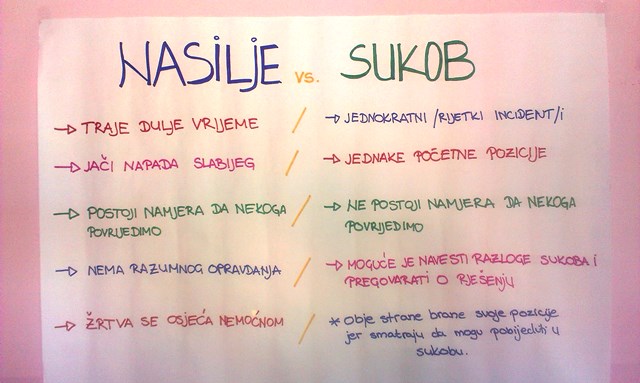 NASILJE vs. SUKOB
→ TRAJE DULJE VRIJEME / → JEDNOKRATNI /RIJETKI INCIDENT/i
→ JAČI NAPADA SLABIJEG / → JEDNAKE POČETNE POZICIJE
→ POSTOJI NAMJERA DA NEKOGA / → NE POSTOJI NAMJERA DA NEKOGA
POVRIJEDIMO POVRIJEDIMO
→ NEMA RAZUMNOG OPRAVDANJA / → MOGUĆE JE NAVESTI RAZLOGE SUKOBA I
PREGOVARATI O RJEŠENJU
→ ŽRTVA SE OSJEĆA NEMOĆNOM / * Obje strane brane svoje pozicije
jer smatraju da mogu pobijediti u
sukobu.